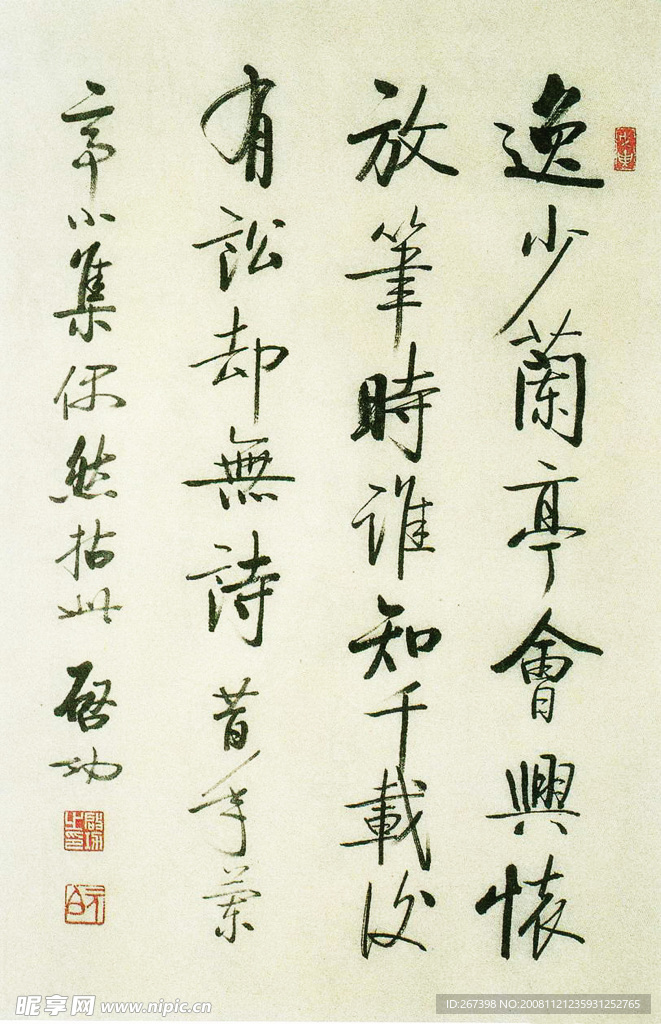 逸少蘭亭會興懷
放筆時誰知千載後
有訟却無詩 昔年蘭
亭小集偶然拈此 啓功
啟功之印
元白
昵享网 www.nipic.cn
ID:267398 NO:20081121235931252765